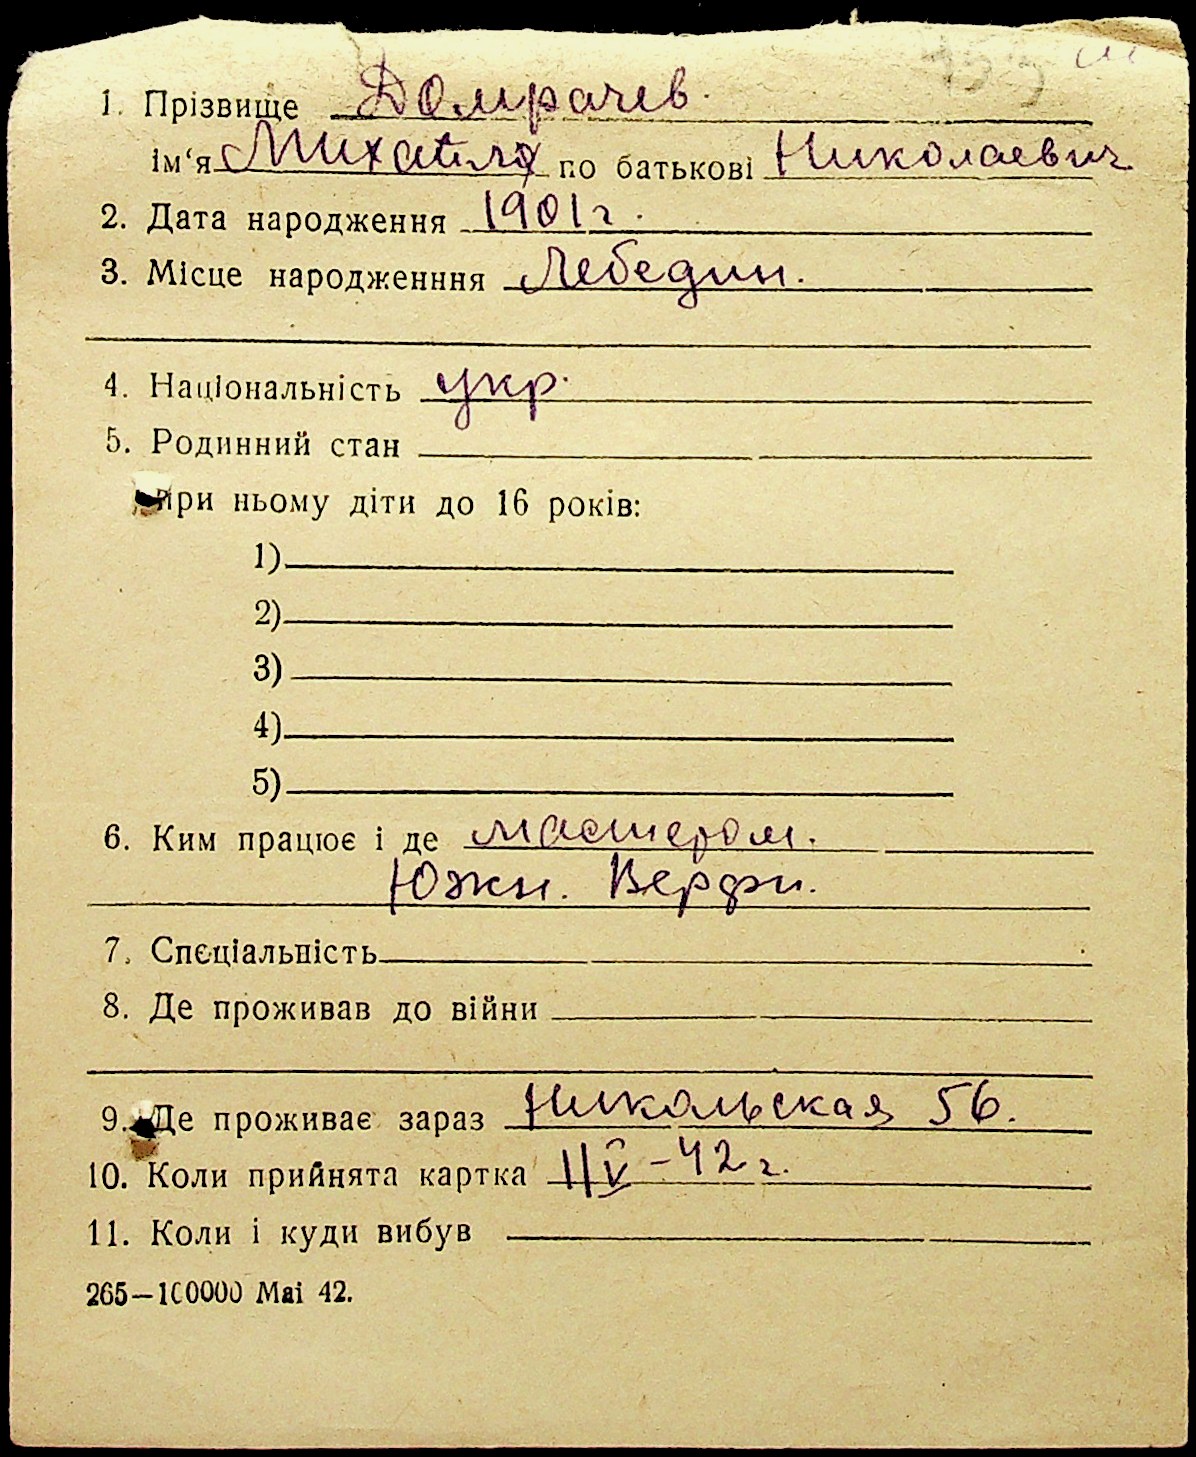 1. Прізвище Домрачев.
ім‘я Михаил по батькові Николаевич
2. Дата народження 1901 г.
3. Місце народженння Лебедин.
4. Національність укр.
5. Родинний стан
при ньому діти до 16 років:
1)
2)
3)
4)
5)
6. Ким працює і де мастером.
Южн. Верфи.
7. Спєціальність
8. Де проживав до війни
9. Де проживає зараз Никольская 56.
10. Коли прийнята картка 11/V – 42 г.
11. Коли і куди вибув
265—100000 Mai 42.